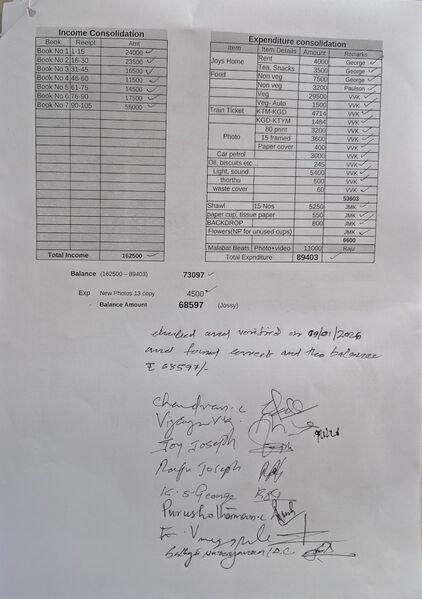 Income Consolidation
Book Receipt Amt
Book No 1 1-15 24000
Book No 2 16-30 23500
Book No 3 31-45 16500
Book No 4 46-60 11500
Book No 5 61-75 14500
Book No 6 76-90 17500
Book No 7 90-105 55000
Total Income 162500
Expenditure consolidation
Item Item Details Amount Remarks
Joys Home Rent 4000 George
Tea, Snacks 3500 George
Food Non veg 7500 George
Non veg 3200 Paulson
Veg 29500 VVK
Veg- Auto 1500 VVK
Train Ticket KTM-KGD 4714 VVK
KGD-KTYM 1484 VVK
Photo 80 print 3200 VVK
15 framed 3600 VVK
Paper cover 400 VVK
Car petrol 3000 VVK
Oil, biscuits etc... 245 VVK
Light, sound 5400 VVK
thorthu 500 VVK
waste cover 60 VVK
53603
Shawl 15 Nos 5250 JMK
paper cup, tissue paper 550 JMK
BACKDROP 800 JMK
Flowers(NP for unused cups) JMK
6600
Malabar Beats Photo+video 11000 Raju
Total Expnditure 89403
Balance (162500 – 89403) 73097
Exp New Photos 13 copy 4500
- Balance Amount 68597 (Jossy)
checked and verified on 09/01/2026
and found correct and the balance
₹ 68597/-
Chandran.c
Joy Joseph
Raju Joseph
K. S George
Purushothaman.c